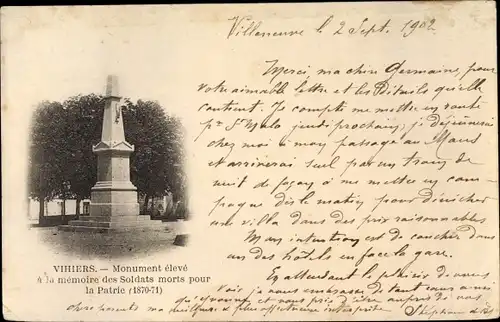 Villeneuve le 2 Sept. 1902
Merci, ma chère Germaine, pour
votre aimable lettre et les détails qu'elle
contient. Je compte me mettre en route
pr St Malo jeudi prochain, je déjeunerai
chez moi à mon passage au Mans
et arriverai seul par un train de
nuit de façon à me mettre en cam-
pagne dès le matin pour dénicher
une villa dans des prix raisonnables
Mon intention est de coucher dans
un des hôtels en face la gare.
En attendant le plaisir de vous
voir je vous embrasse de tout cœur ainsi
qu'Yvonne et vous prie d'être auprès de vos
chers parents ma meilleure et plus affectueuse interprète
Stéphanie
VIHIERS. — Monument élevé
à la mémoire des Soldats morts pour
la Patrie (1870-71)